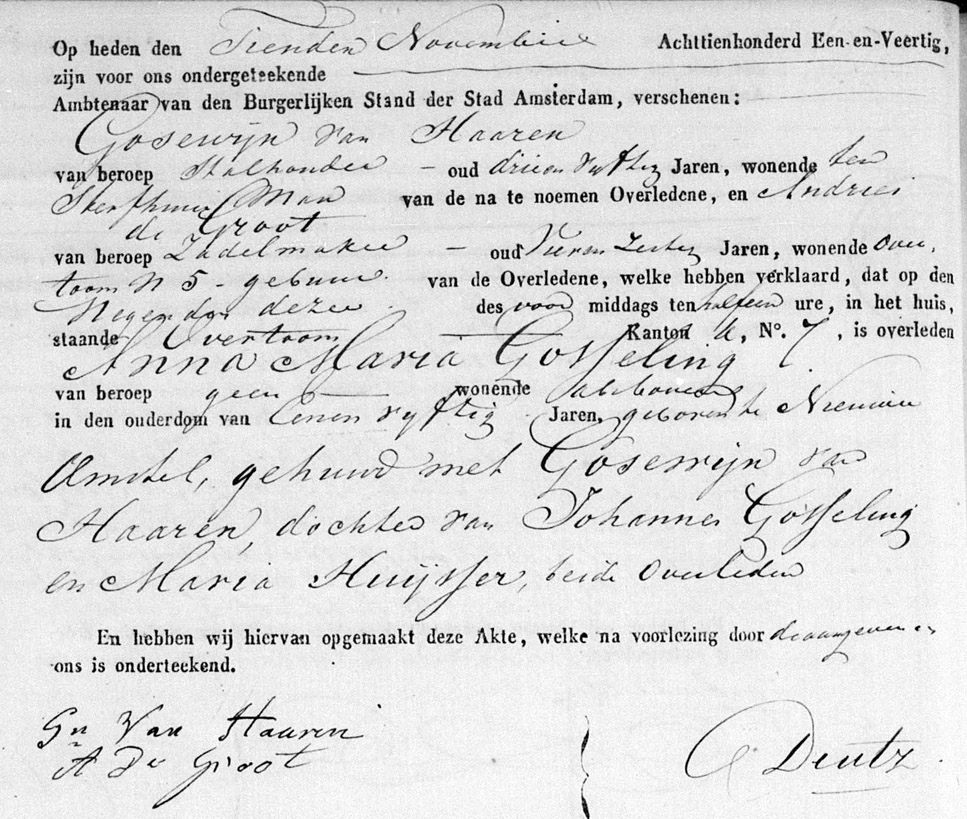 Op heden den Tienden November Achttienhonderd Een-en-Veertig,
zijn voor ons ondergeteekende
Ambtenaar van den Burgerlijken Stand der Stad Amsterdam, verschenen:
Gosewijn van Haaren
van beroep Stalhouder – oud drieen vyftig Jaren, wonende ten
Sterfhuize Man van de na te noemen Overledene, en Andries
de Groot
van beroep Zadelmaker – oud Vieren Zestig Jaren, wonende Over
toom N 5 – gebuur van de Overledene, welke hebben verklaard, dat op den
Negenden dezer des voor middags ten half een ure, in het huis,
staande Overtoom Kanton No. 7, is overleden
Anna Maria Gosseling
van beroep geen wonende als boven
in den ouderdom van Eenen vyftig Jaren, geboren te Nieuwer
Amstel, gehuwd met Gosewijn van
Haaren, dochter van Johannes Gosseling
en Maria Huijsser, beide Overleden
En hebben wij hiervan opgemaakt deze Akte, welke na voorlezing door de aangevers en
ons is onderteekend.
Gn Van Haaren
A De Groot
Deutz